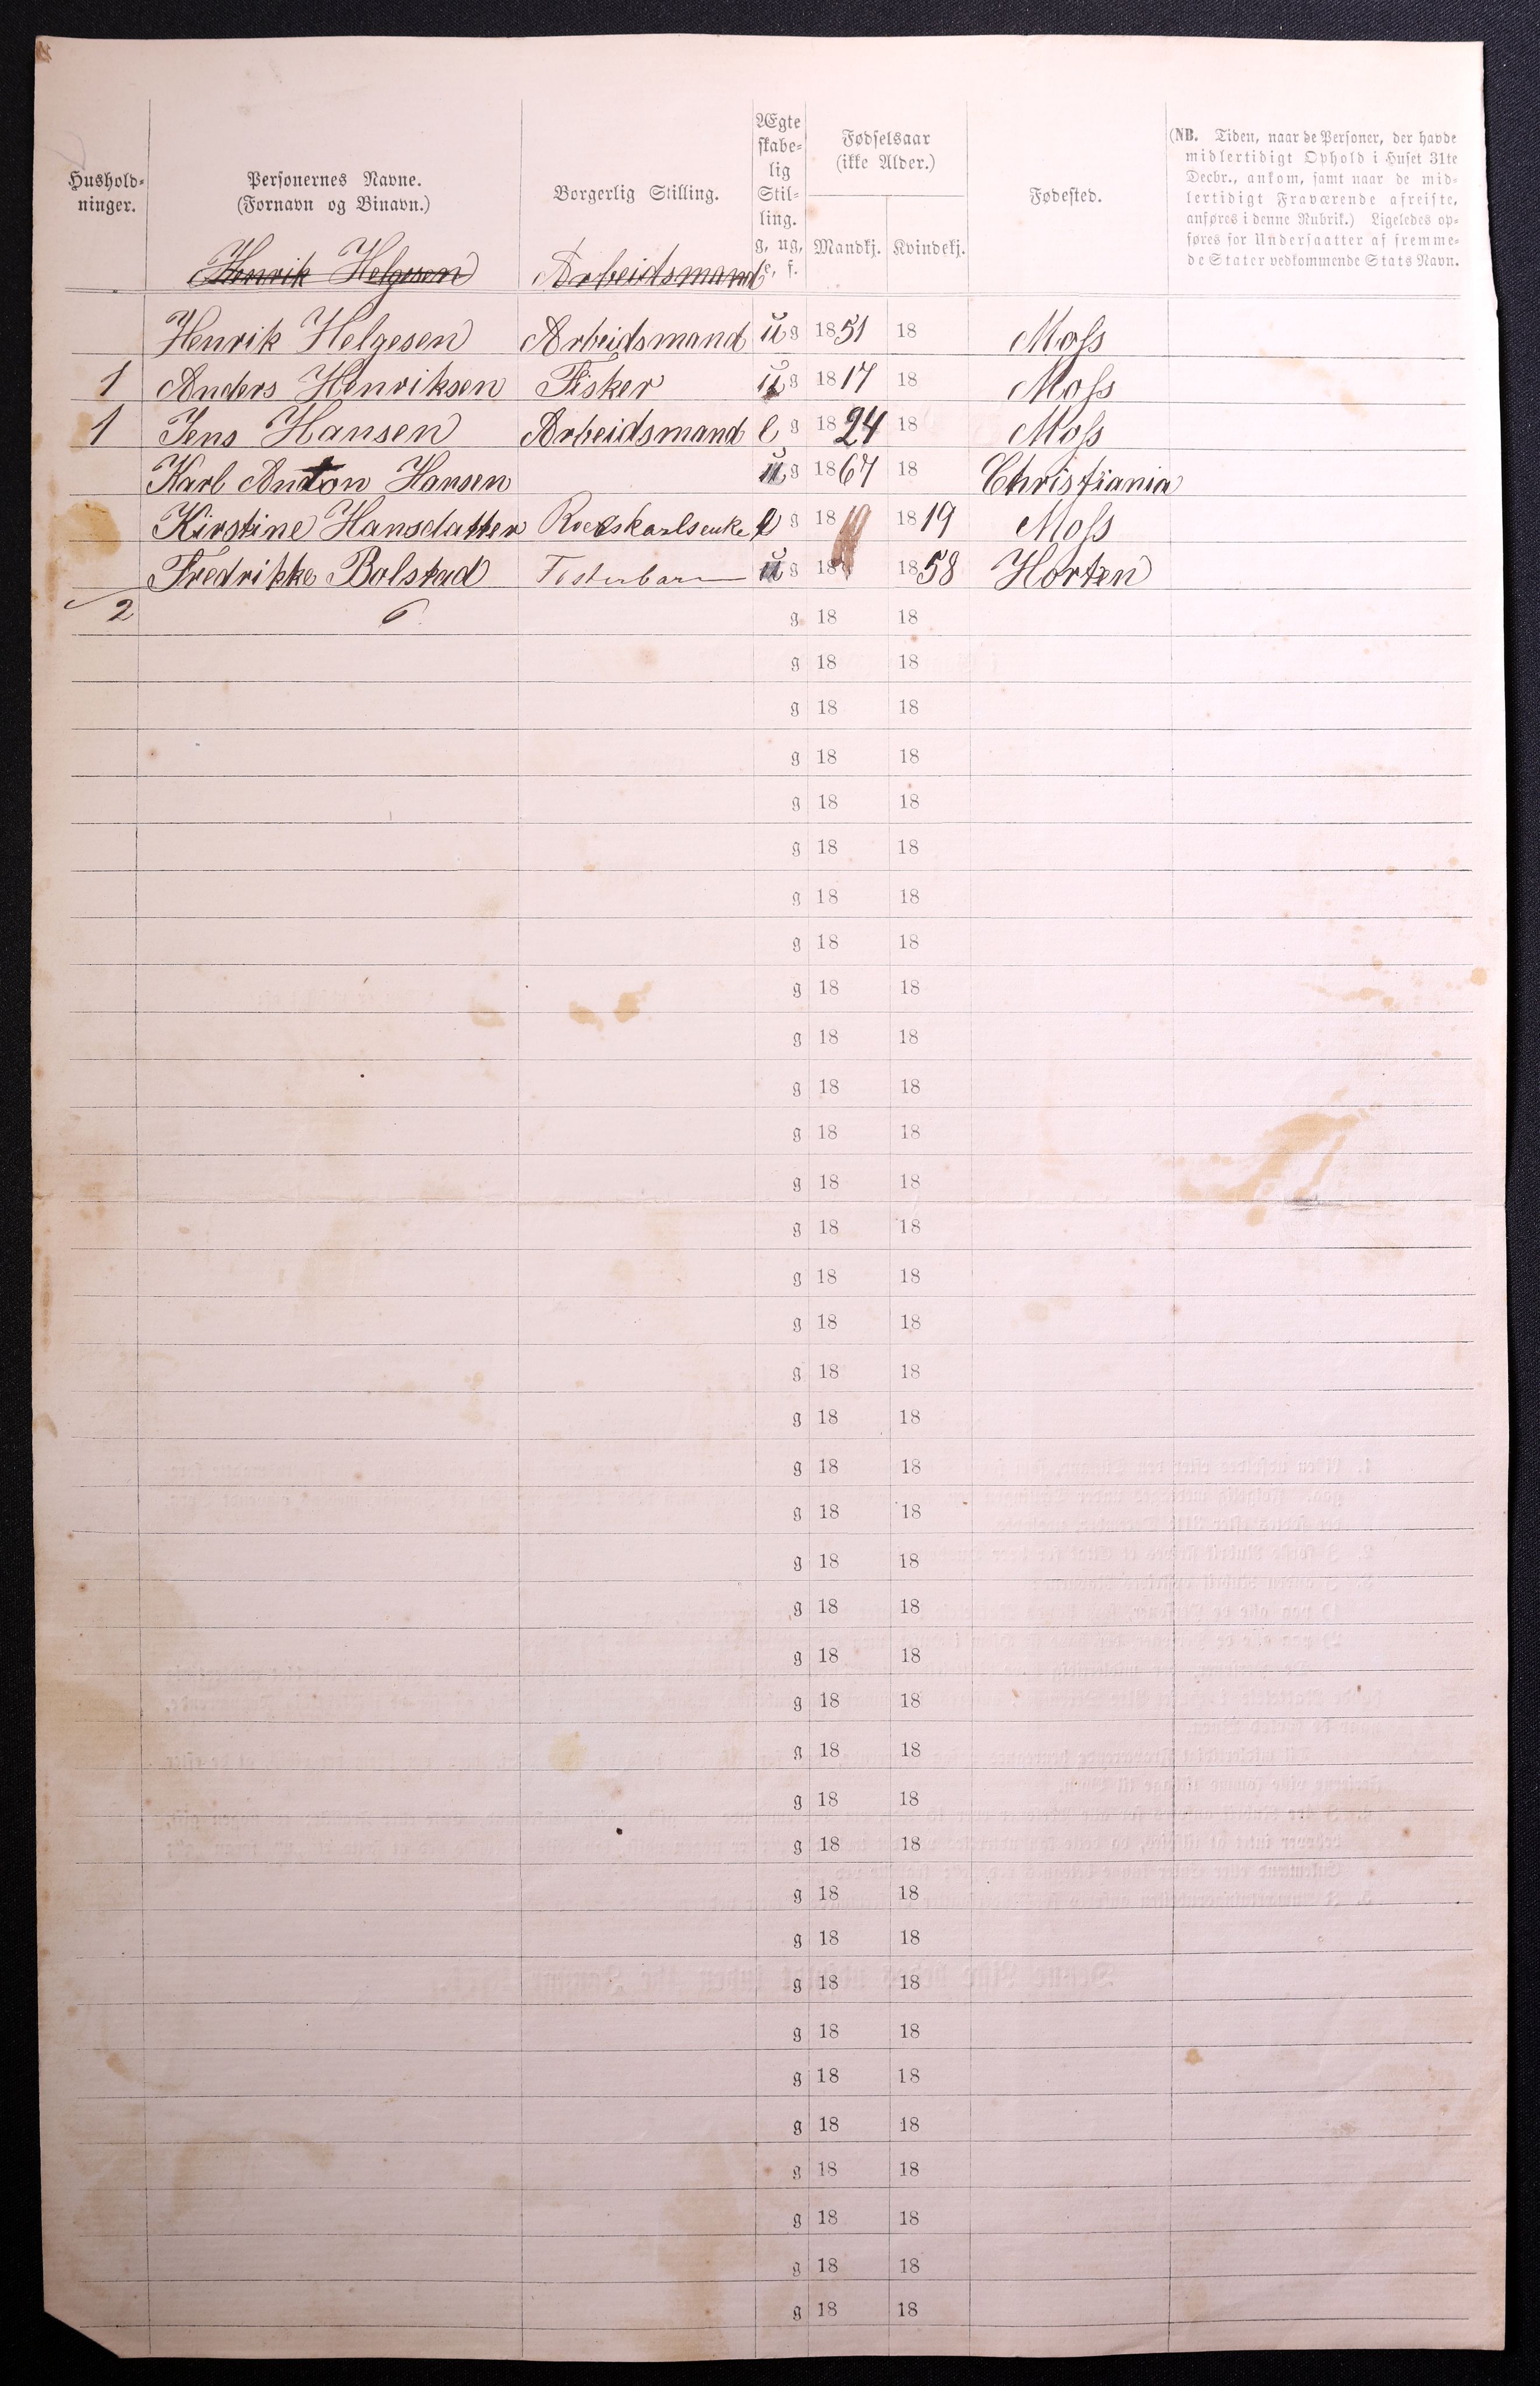 Hushold-
ninger.
Personernes Navne.
(Fornavn og Binavn.)
Borgerlig Stilling.
Ægte
skabe-
lig
Stil-
ling.
g, ug,
e, f.
Fødselsaar
(ikke Alder.)
Mandkj. Kvindekj.
Fødested.
(NB. Tiden, naar de Personer, der havde
midlertidigt Ophold i Huset 31te
Decbr., ankom, samt naar de mid-
lertidigt Fraværende afreiste,
anføres i denne Rubrik.) Ligeledes op-
føres for Undersaatter af fremme-
de Stater vedkommende Stats Navn.
Henrik Helgesen Arbeidsmand
Henrik Helgesen Arbeidsmand ug 1851 18 Moss
1 Anders Henriksen Fisker ug 1817 18 Moss
1 Jens Hansen Arbeidsmand e g 1824 18 Moss
Karl Anton Hansen ug 1867 18 Christiania
Kirstine Hansdatter e g 1819 1819 Moss
Fredrikke Bolstad Fosterbarn ug 18 1858 Horten
2 6 g 18 18
g 18 18
g 18 18
g 18 18
g 18 18
g 18 18
g 18 18
g 18 18
g 18 18
g 18 18
g 18 18
g 18 18
g 18 18
g 18 18
g 18 18
g 18 18
g 18 18
g 18 18
g 18 18
g 18 18
g 18 18
g 18 18
g 18 18
g 18 18
g 18 18
g 18 18
g 18 18
g 18 18
g 18 18
g 18 18
g 18 18
g 18 18
g 18 18
g 18 18
g 18 18
g 18 18
g 18 18